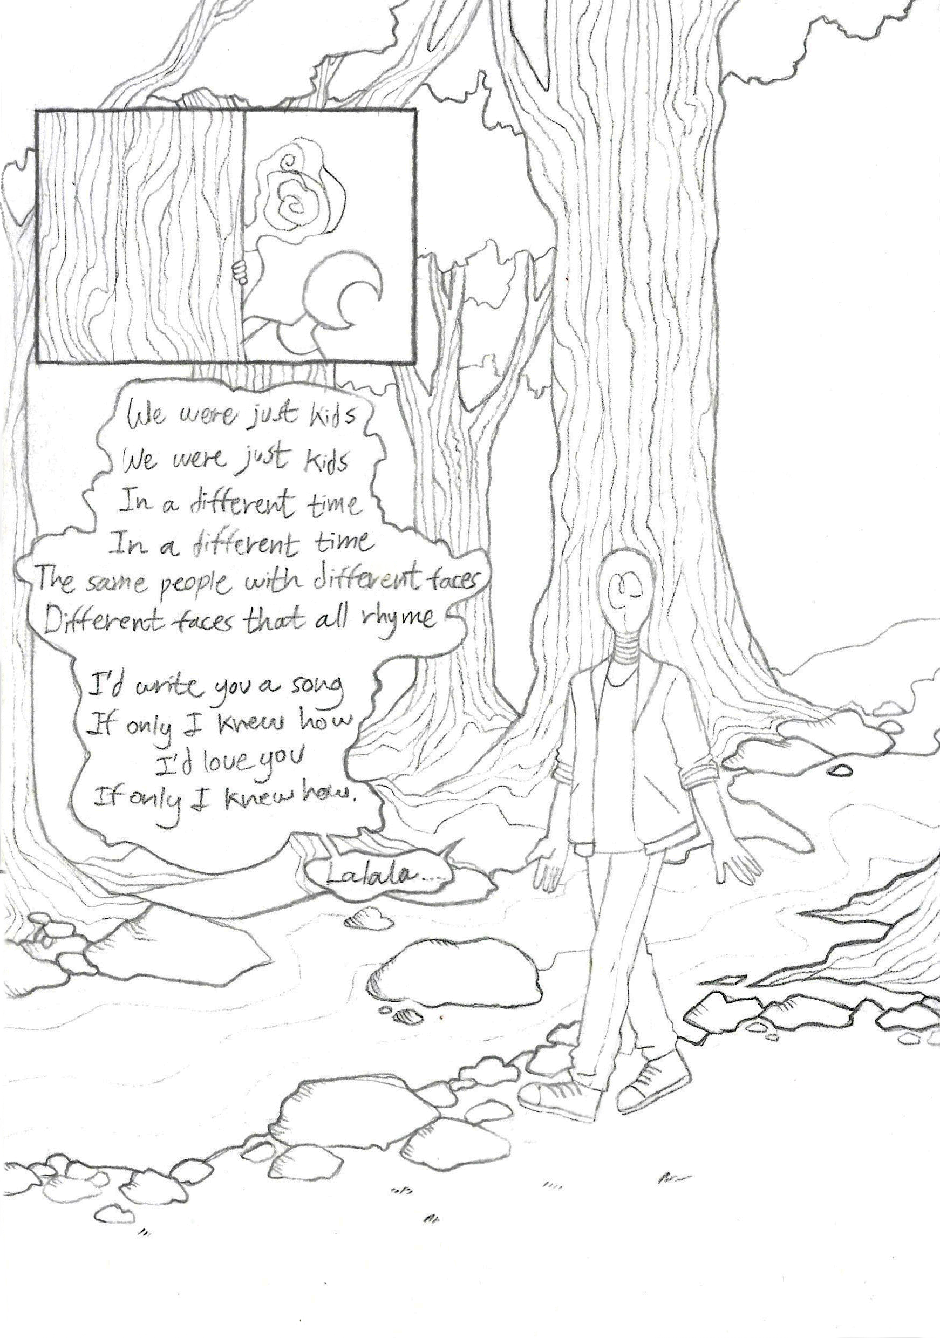 We were just kids
We were just kids
In a different time
In a different time
The same people with different faces
Different faces that all rhyme
I'd write you a song
If only I knew how
I'd love you
If only I knew how.
Lalala....